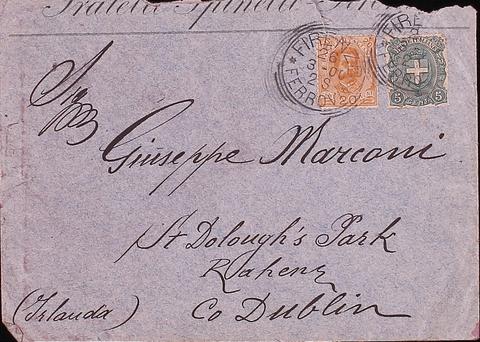 Fratelli Spinelli
FIREN
FERROV
FIRE
5
CENT.
Sig
Giuseppe Marconi
St Dolough's Park
Raheny
Co Dublin
(Irlanda)